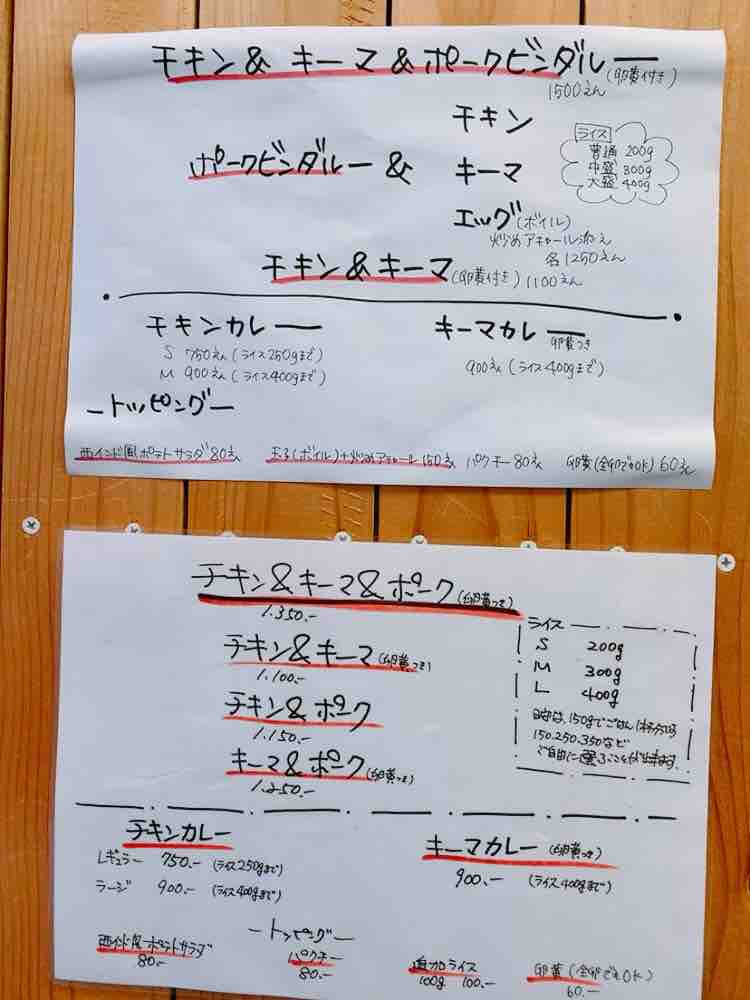 チキン & キーマ & ポークビンダルー(卵黄付き)
1500えん
ポークビンダルー & チキン
キーマ
エッグ(ボイル)
炒めアチャール添え
各1250えん
ライス
普通 200g
中盛 300g
大盛 400g
チキン&キーマ(卵黄付き)1100えん
チキンカレー
S 750えん(ライス250gまで)
M 900えん(ライス400gまで)
キーマカレー
卵黄つき
900えん(ライス400gまで)
ートッピングー
西インド風ポテトサラダ80えん 玉子(ボイル)+炒めアチャール150えん パクチー80えん 卵黄(全卵でもOK)60えん
チキン&キーマ&ポーク(卵黄つき)
1.350.-
チキン&キーマ(卵黄つき)
1.100.-
チキン&ポーク
1.150.-
キーマ&ポーク(卵黄つき)
1.250.-
ライス
S 200g
M 300g
L 400g
150.250.350など
ご自由に選ぶことが出来ます。
チキンカレー
レギュラー 750.- (ライス250gまで)
ラージ 900.- (ライス400gまで)
キーマカレー(卵黄つき)
900.- (ライス400gまで)
ートッピングー
西インド風ポテトサラダ
80.-
パクチー
80.-
追加ライス
100g 100.-
卵黄(全卵でもOK)
60.-